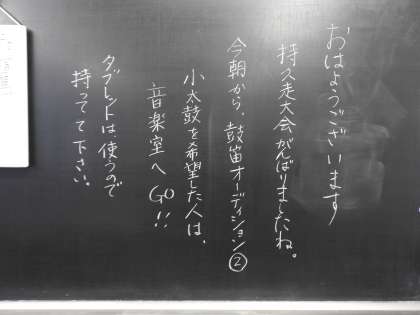 おはようございます
持久走大会がんばりましたね。
今朝から、鼓笛オーディション②
小太鼓を希望した人は、
音楽室へ GO!!
タブレットは使うので
持ってて下さい。